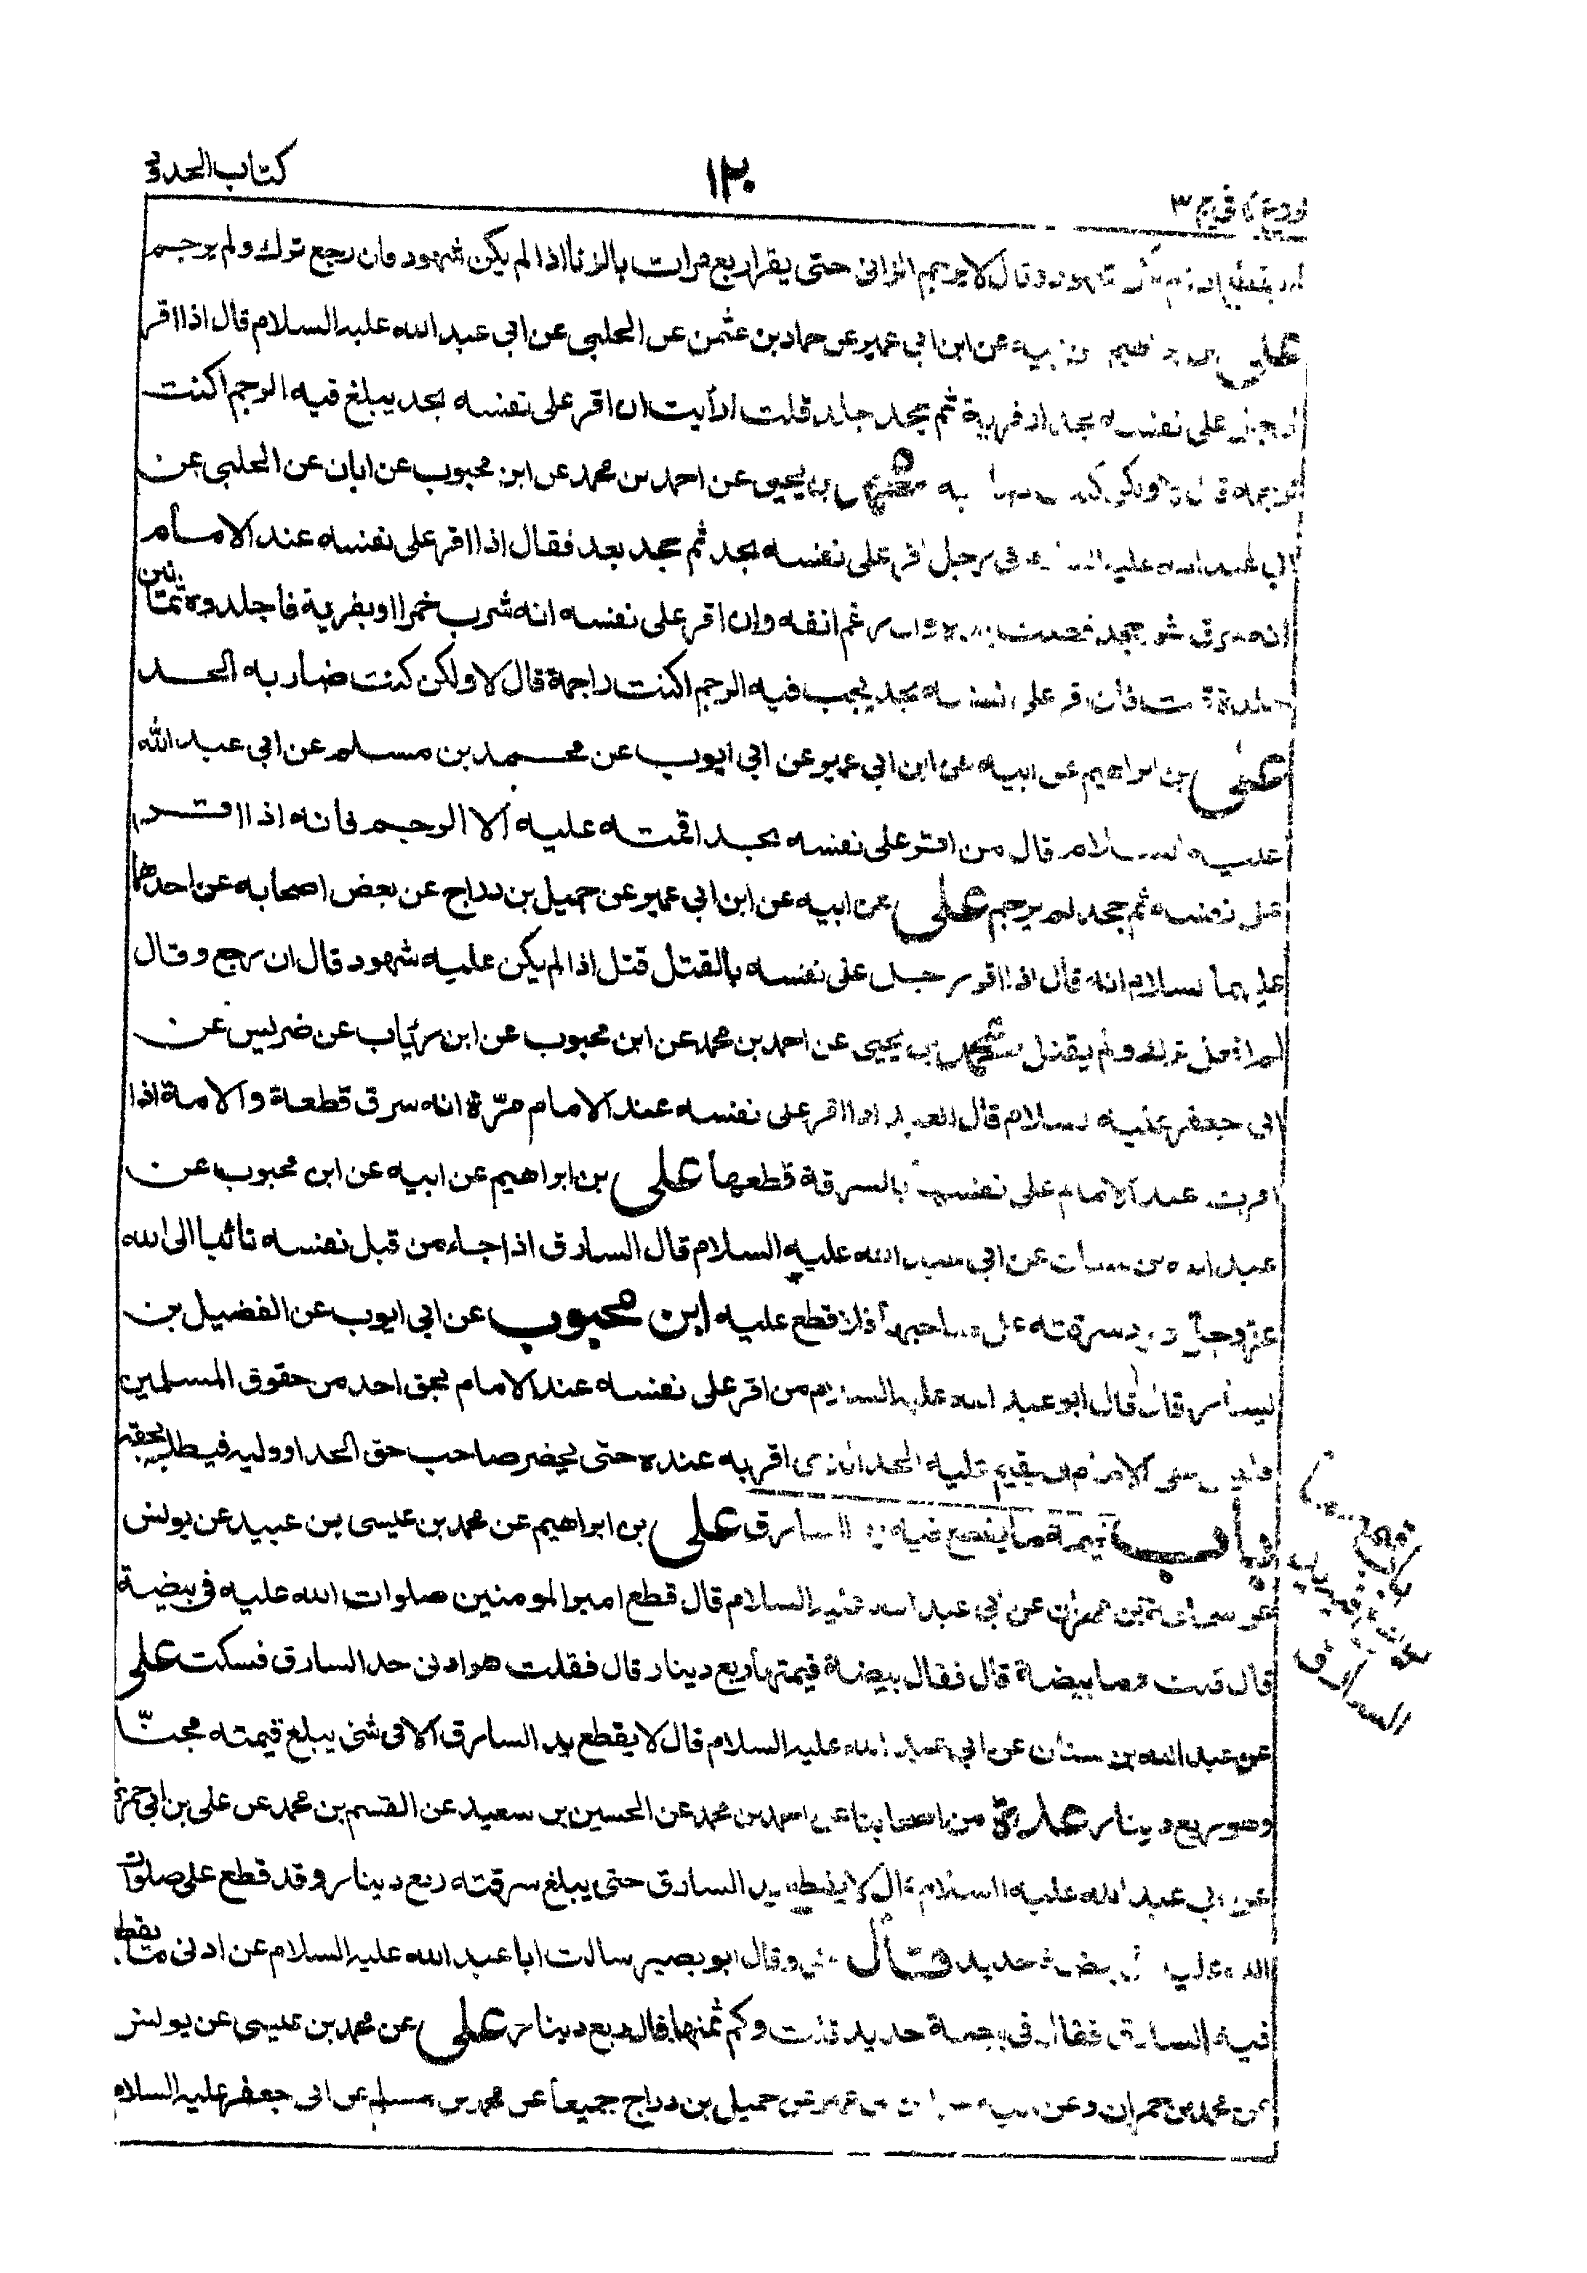 فروع كافي ج ٣ ١٣٠ كتاب الحدود
وقال لا يرجم الزاني حتى يقر اربع مرات بالزنا اذا لم يكن شهود فان رجع ترك ولم يرجم
علي بن ابراهيم عن ابيه عن ابن ابي عمير عن حماد بن عثمن عن الحلبي عن ابي عبد الله عليه السلام قال اذا اقر
الرجل على نفسه بحد او فرية ثم جحد جلد قلت ارأيت ان اقر على نفسه بحد يبلغ فيه الرجم اكنت
ترجمه قال لا ولكن كنت ضاربه محمد بن يحيى عن احمد بن محمد عن ابن محبوب عن ابان عن الحلبي عن
ابي عبد الله عليه السلام في رجل اقر على نفسه بحد ثم جحد بعد فقال اذا اقر على نفسه عند الامام
انه سرق ثم جحد قطعت يده وان رغم انفه وان اقر على نفسه انه شرب خمرا او بفرية فاجلدوه ثمانين
جلدة قلت فان اقر على نفسه بحد يجب فيه الرجم اكنت راجمه قال لا ولكن كنت ضاربه الحد
علي بن ابراهيم عن ابيه عن ابن ابي عمير عن ابي ايوب عن محمد بن مسلم عن ابي عبد الله
عليه السلام قال من اقر على نفسه بحد اقمته عليه الا الرجم فانه اذا اقر
على نفسه ثم جحد لم يرجم علي عن ابيه عن ابن ابي عمير عن جميل بن دراج عن بعض اصحابه عن احدهما
عليهما السلام انه قال اذا اقر رجل على نفسه بالقتل قتل اذا لم يكن عليه شهود قال ان رجع وقال
لم افعل ترك ولم يقتل محمد بن يحيى عن احمد بن محمد عن ابن محبوب عن ابن رئاب عن ضريس عن
ابي جعفر عليه السلام قال العبد اذا اقر على نفسه عند الامام مرّة انه سرق قطعة والامة اذا
اقرت عند الامام على نفسها بالسرقة قطعها علي بن ابراهيم عن ابيه عن ابن محبوب عن
عبد الله بن سنان عن ابي عبد الله عليه السلام قال السارق اذا جاء من قبل نفسه تائبا الى الله
عز وجل سرقته على صاحبها فلا قطع عليه ابن محبوب عن ابي ايوب عن الفضيل بن
يسار قال قال ابو عبد الله عليه السلام من اقر على نفسه عند الامام بحق احد من حقوق المسلمين
فليس على الامام ان يقيم عليه الحد الذي اقر به عنده حتى يحضر صاحب حق الحد او وليه فيطلبه بحقه
باب قيمة ما يقطع فيه السارق علي بن ابراهيم عن محمد بن عيسى بن عبيد عن يونس
عن سماعة بن مهران عن ابي عبد الله عليه السلام قال قطع امير المومنين صلوات الله عليه في بيضة
قال قلت وما بيضة قال فقال بيضة قيمتها ربع دينار قال فقلت هو ادنى حد السارق فسكت علي
عن عبد الله بن سنان عن ابي عبد الله عليه السلام قال لا يقطع يد السارق الا في شئ يبلغ قيمته مجنّا
وهو ربع دينار عدة من اصحابنا عن احمد بن محمد عن الحسين بن سعيد عن القسم بن محمد عن علي بن ابي حمزة
عن ابي عبد الله عليه السلام قال لا يقطع يد السارق حتى يبلغ سرقته ربع دينار وقد قطع علي صلوات
الله عليه في بيضة حديد قال علي وقال ابو بصير سالت ابا عبد الله عليه السلام عن ادنى ما يقطع
فيه السارق فقال في بيضة حديد قلت وكم ثمنها قال ربع دينار علي عن محمد بن عيسى عن يونس
عن محمد بن حمران وعن ابيه عن ابن ابي عمير عن جميل بن دراج جميعا عن محمد بن مسلم عن ابي جعفر عليه السلام